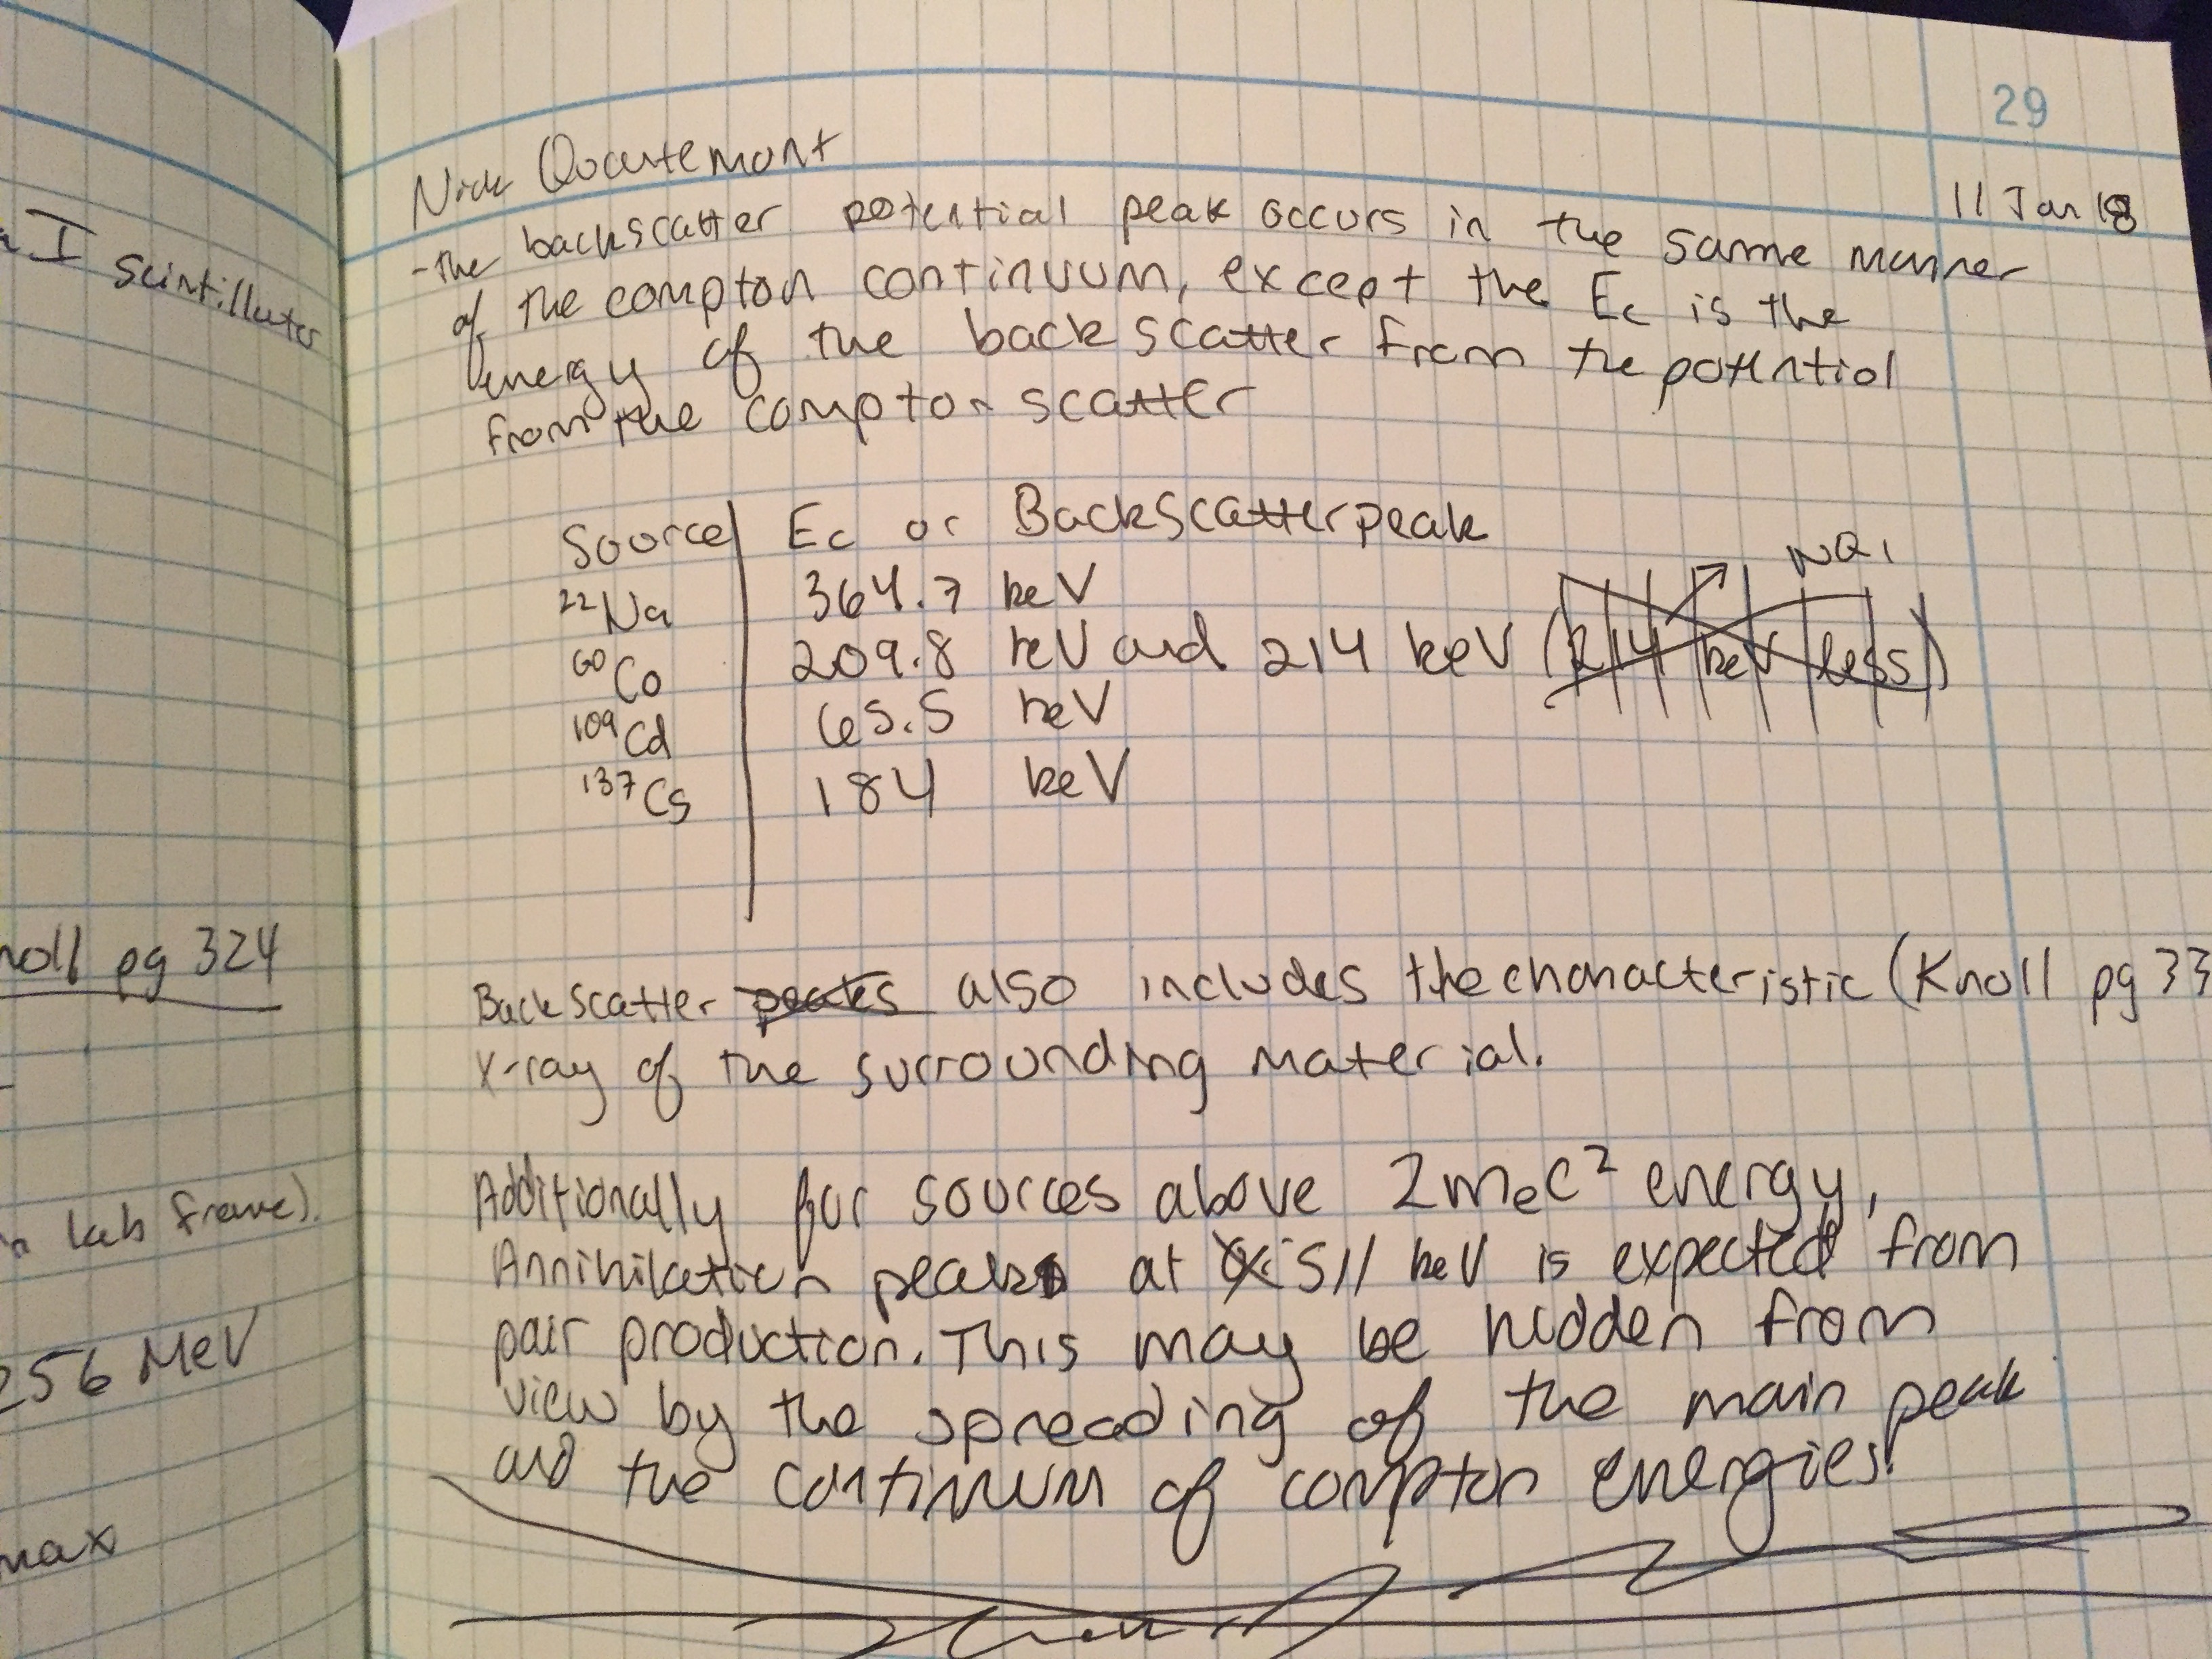 29
Nick Quartemont
11 Jan 18
-the backscatter potential peak occurs in the same manner
of the compton continuum, except the Ec is the
energy of the backscatter from the potential
from the compton scatter
Source Ec or Backscatter peak
22Na 364.7 keV
NQ1
60Co 209.8 keV and 214 keV (214 keV less)
109Cd 65.5 keV
137Cs 184 keV
Backscatter peaks also includes the characteristic (Knoll pg 33
X-ray of the surrounding material.
Additionally for sources above 2mec² energy,
Annihilation peak at 511 keV is expected from
pair production. This may be hidden from
view by the spreading of the main peak
and the continuum of compton energies.
I scintillator
noll pg 324
lab frame).
256 MeV
max